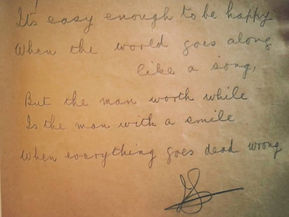 It's easy enough to be happy
When the world goes along
like a song,
But the man worth while
Is the man with a smile
When everything goes dead wrong